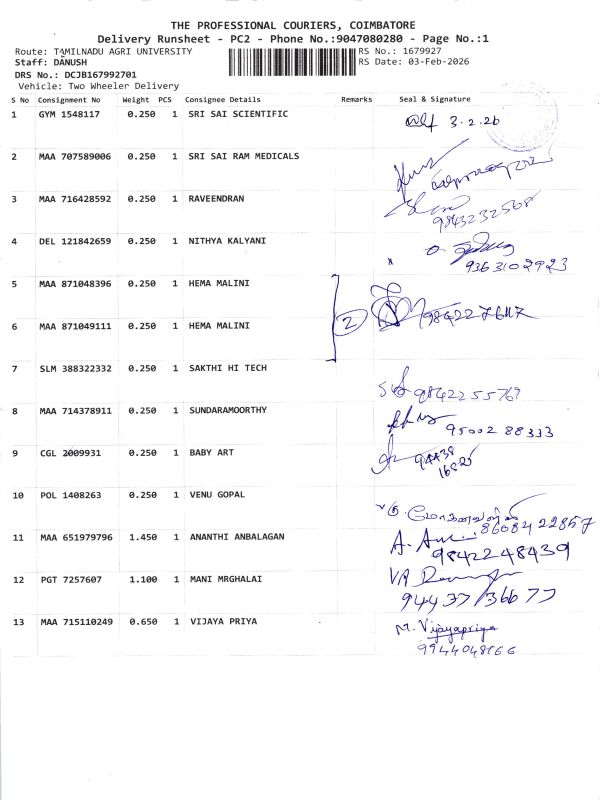 THE PROFESSIONAL COURIERS, COIMBATORE
Delivery Runsheet - PC2 - Phone No.:9047080280 - Page No.:1
Route: TAMILNADU AGRI UNIVERSITY
RS No.: 1679927
Staff: DANUSH
RS Date: 03-Feb-2026
DRS No.: DCJB167992701
Vehicle: Two Wheeler Delivery
S No Consignment No Weight PCS Consignee Details Remarks Seal & Signature
1 GYM 1548117 0.250 1 SRI SAI SCIENTIFIC 3.2.26
2 MAA 707589006 0.250 1 SRI SAI RAM MEDICALS
3 MAA 716428592 0.250 1 RAVEENDRAN
9843232568
4 DEL 121842659 0.250 1 NITHYA KALYANI
9363102923
5 MAA 871048396 0.250 1 HEMA MALINI
2
6 MAA 871049111 0.250 1 HEMA MALINI
7 SLM 388322332 0.250 1 SAKTHI HI TECH
9842255769
8 MAA 714378911 0.250 1 SUNDARAMOORTHY
95002 88333
9 CGL 2009931 0.250 1 BABY ART
94438
10 POL 1408263 0.250 1 VENU GOPAL
8608422857
11 MAA 651979796 1.450 1 ANANTHI ANBALAGAN
9842248439
12 PGT 7257607 1.100 1 MANI MRGHALAI
94437 36677
13 MAA 715110249 0.650 1 VIJAYA PRIYA M. Vijayapriya
9944048166